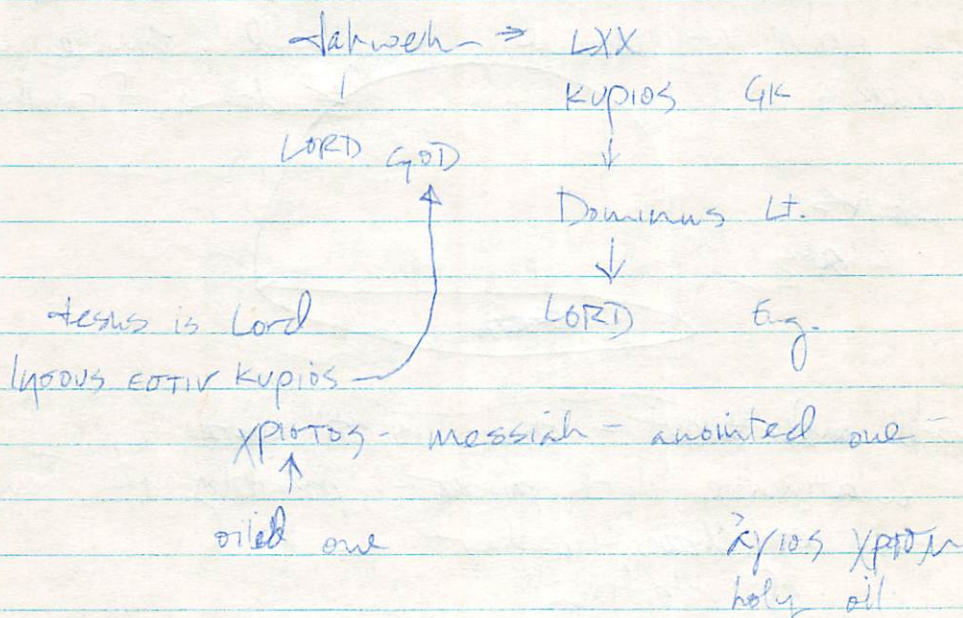 Jahweh → LXX
κυριος GK
LORD GOD
Dominus Lt.
Jesus is Lord
LORD Eng.
Ιησους εστιν κυριος
χριστος - messiah - anointed one -
oiled one
ἁγιος
holy oil